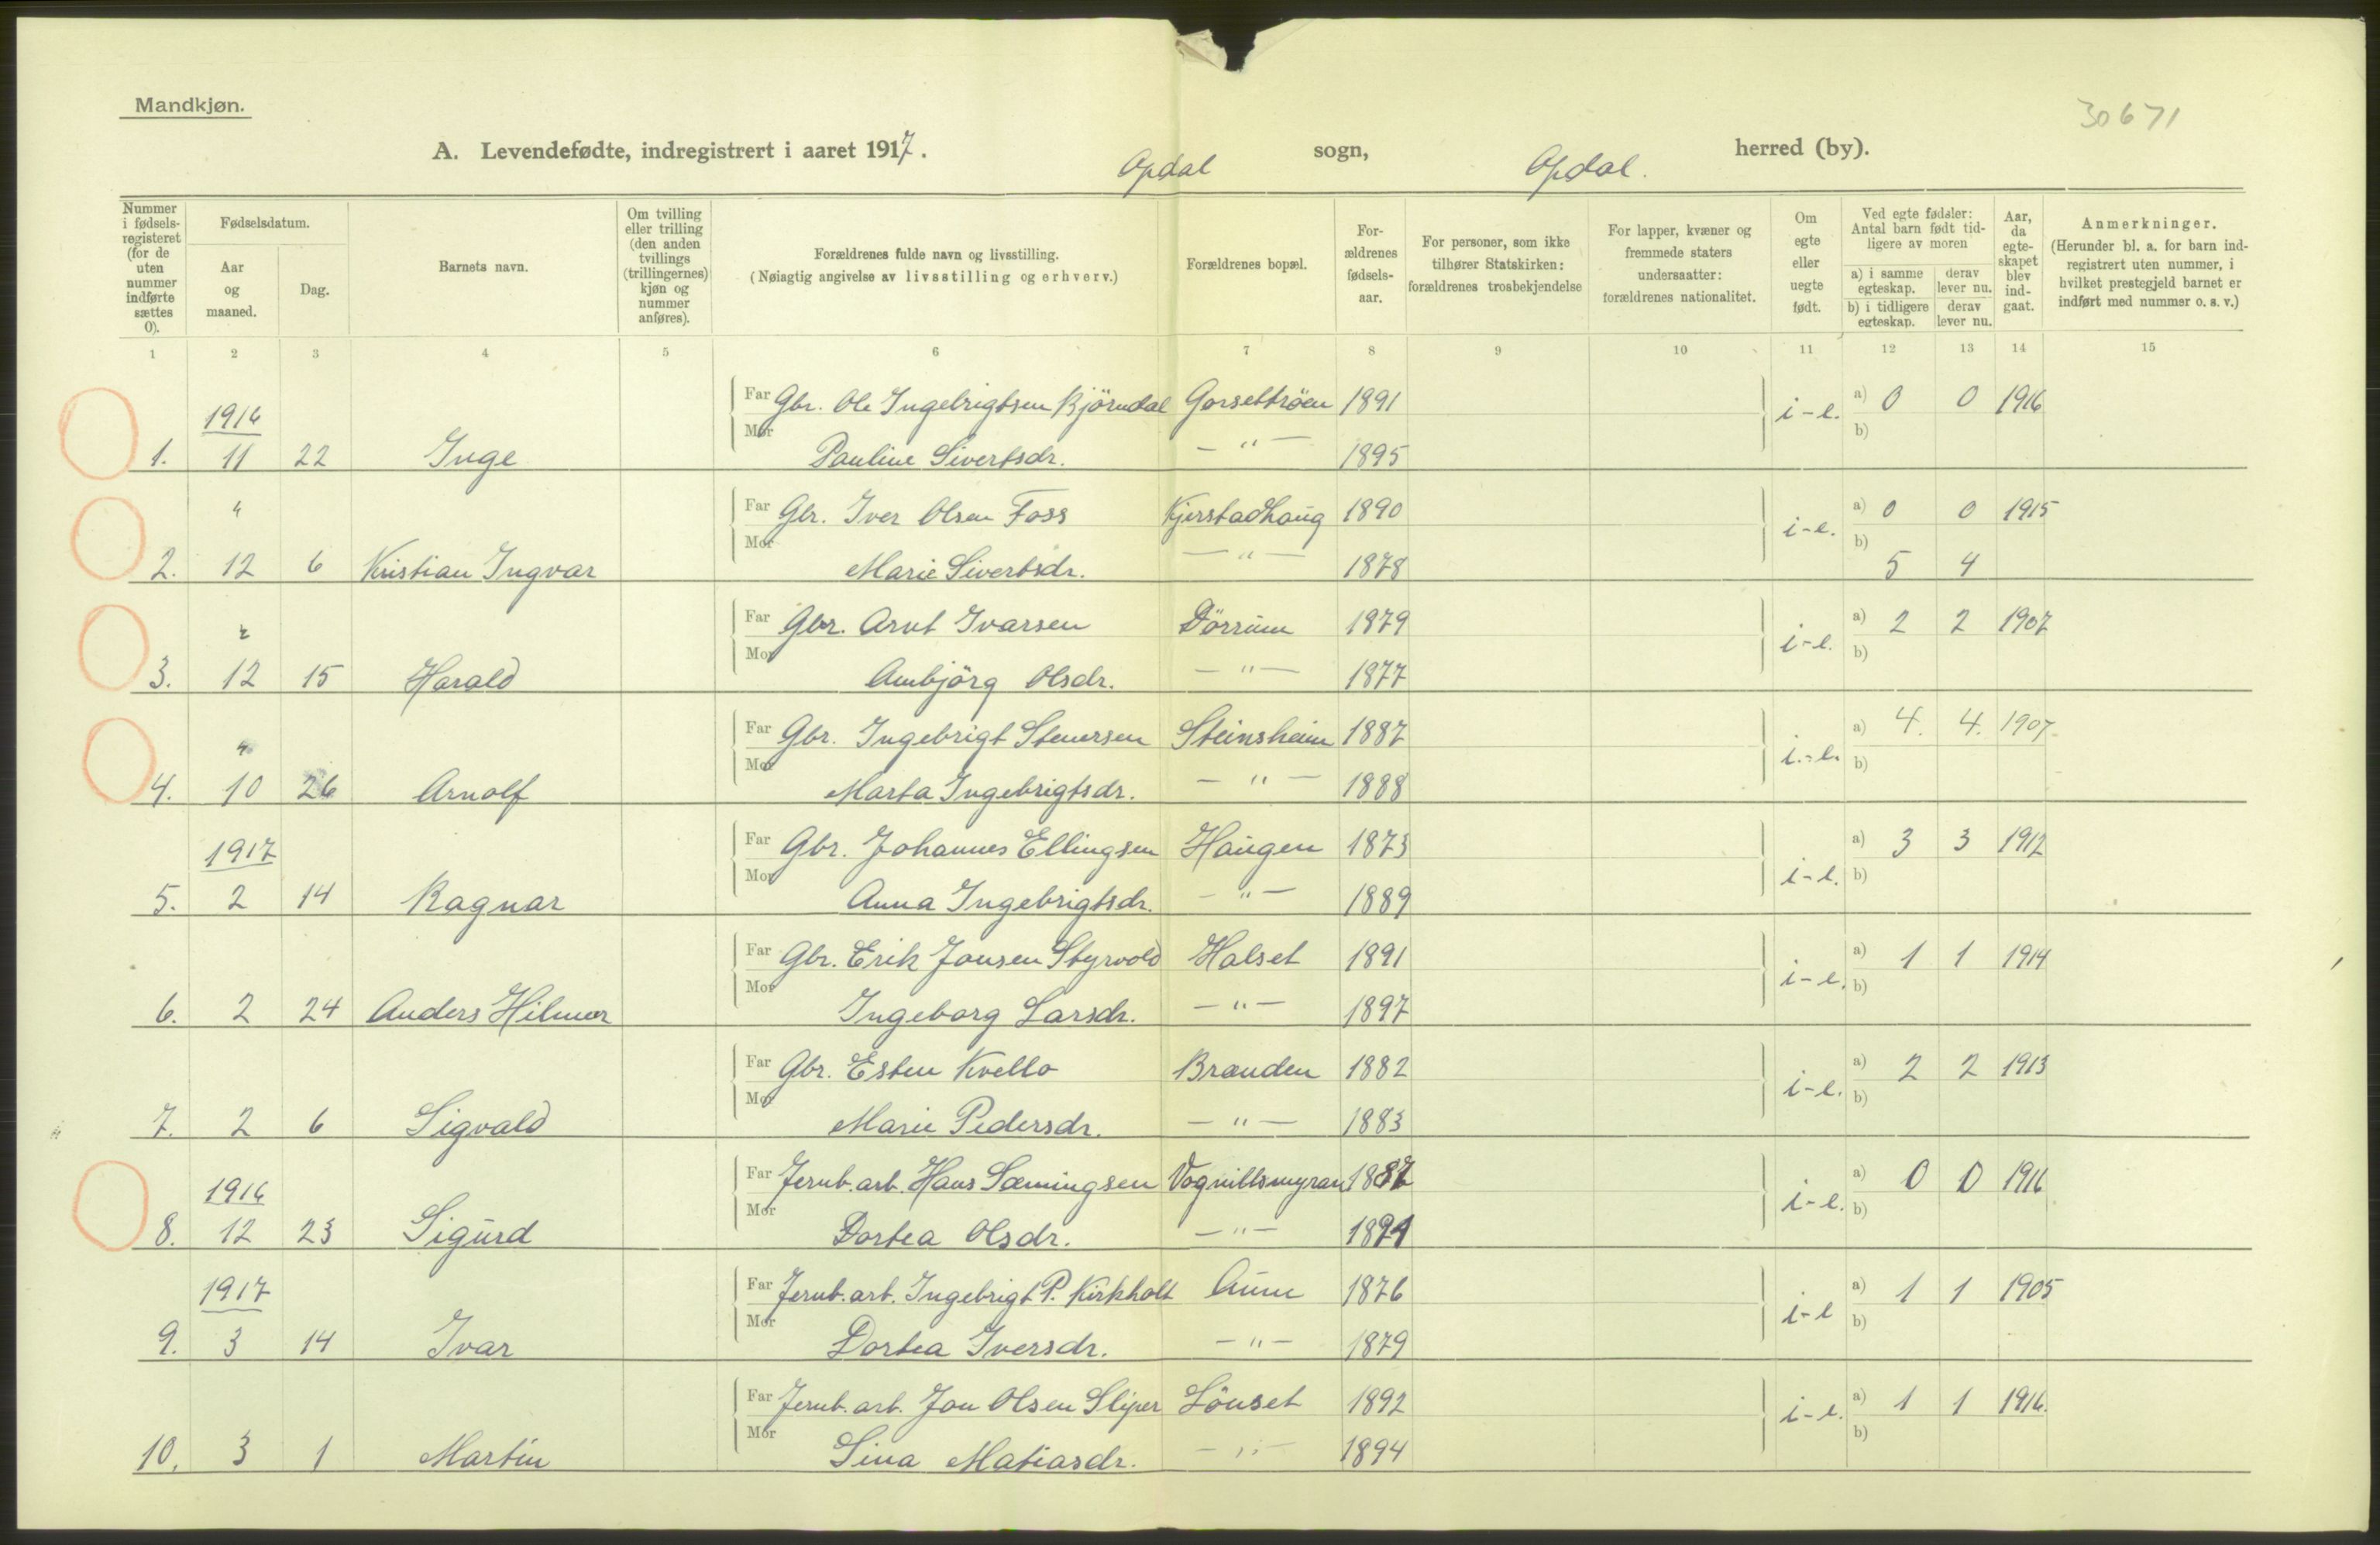 Mandkjøn.
30671
A. Levendefødte, indregistrert i aaret 1917.
Opdal sogn, Opdal. herred (by).
Nummer i fødselsregisteret (for de uten nummer indførte sættes 0).
Fødselsdatum.
Aar og maaned.
Dag.
Barnets navn.
Om tvilling eller trilling (den anden tvillings (trillingernes) kjøn og nummer anføres).
Forældrenes fulde navn og livsstilling.
(Nøiagtig angivelse av livsstilling og erhverv.)
Forældrenes bopæl.
Forældrenes fødselsaar.
For personer, som ikke tilhører Statskirken: forældrenes trosbekjendelse
For lapper, kvæner og fremmede staters undersaatter: forældrenes nationalitet.
Om egte eller uegte født.
Ved egte fødsler: Antal barn født tidligere av moren
a) i samme egteskap.
derav lever nu.
b) i tidligere egteskap.
derav lever nu.
Aar, da egteskapet blev indgaat.
Anmerkninger.
(Herunder bl. a. for barn indregistrert uten nummer, i hvilket prestegjeld barnet er indført med nummer o. s. v.)
1 2 3 4 5 6 7 8 9 10 11 12 13 14 15
1916 Far Gbr. Ole Ingebrigtsen Bjørndal Gorsettröen 1891 i-e. a) 0 0 1916
1. 11 22 Inge Mor Pauline Sivertsdr. — " — 1895 b)
" Far Gbr. Iver Olsen Foss Kjerstadhaug 1890 i-e. a) 0 0 1915
2. 12 6 Kristian Ingvar Mor Marie Sivertsdr. — " — 1878 b) 5 4
" Far Gbr. Arnt Ivarsen Dörrum 1879 i-e. a) 2 2 1907
3. 12 15 Harald Mor Ambjörg Olsdr. — " — 1877 b)
" Far Gbr. Ingebrigt Stenersen Steinsheim 1887 i.-e. a) 4. 4. 1907
4. 10 26 Arnolf Mor Marta Ingebrigtsdr. — " — 1888 b)
1917 Far Gbr. Johannes Ellingsen Haugen 1873 i-e. a) 3 3 1912
5. 2 14 Ragnar Mor Anna Ingebrigtsdr. — " — 1889 b)
Far Gbr. Erik Jonsen Styrvold Halset 1891 i-e. a) 1 1 1914
6. 2 24 Anders Hilmar Mor Ingeborg Larsdr. — " — 1897 b)
Far Gbr. Esten Kvello Branden 1882 i-e. a) 2 2 1913
7. 2 6 Sigvald Mor Marie Pedersdr. — " — 1883 b)
1916 Far Jernb. arb. Hans Sæmingsen Vognillsmyran i-e. a) 0 0 1916
8. 12 23 Sigurd Mor Dortea Olsdr. — " — b)
1917 Far Jernb. arb. Ingebrigt P. Kirkholt Aune 1876 i-e a) 1 1 1905
9. 3 14 Ivar Mor Dortea Iversdr. — " — 1879 b)
Far Jernb. arb. Jon Olsen Sliper Lönset 1892 i-e. a) 1 1 1916.
10. 3 1 Martin Mor Sina Matiasdr. — " — 1894 b)